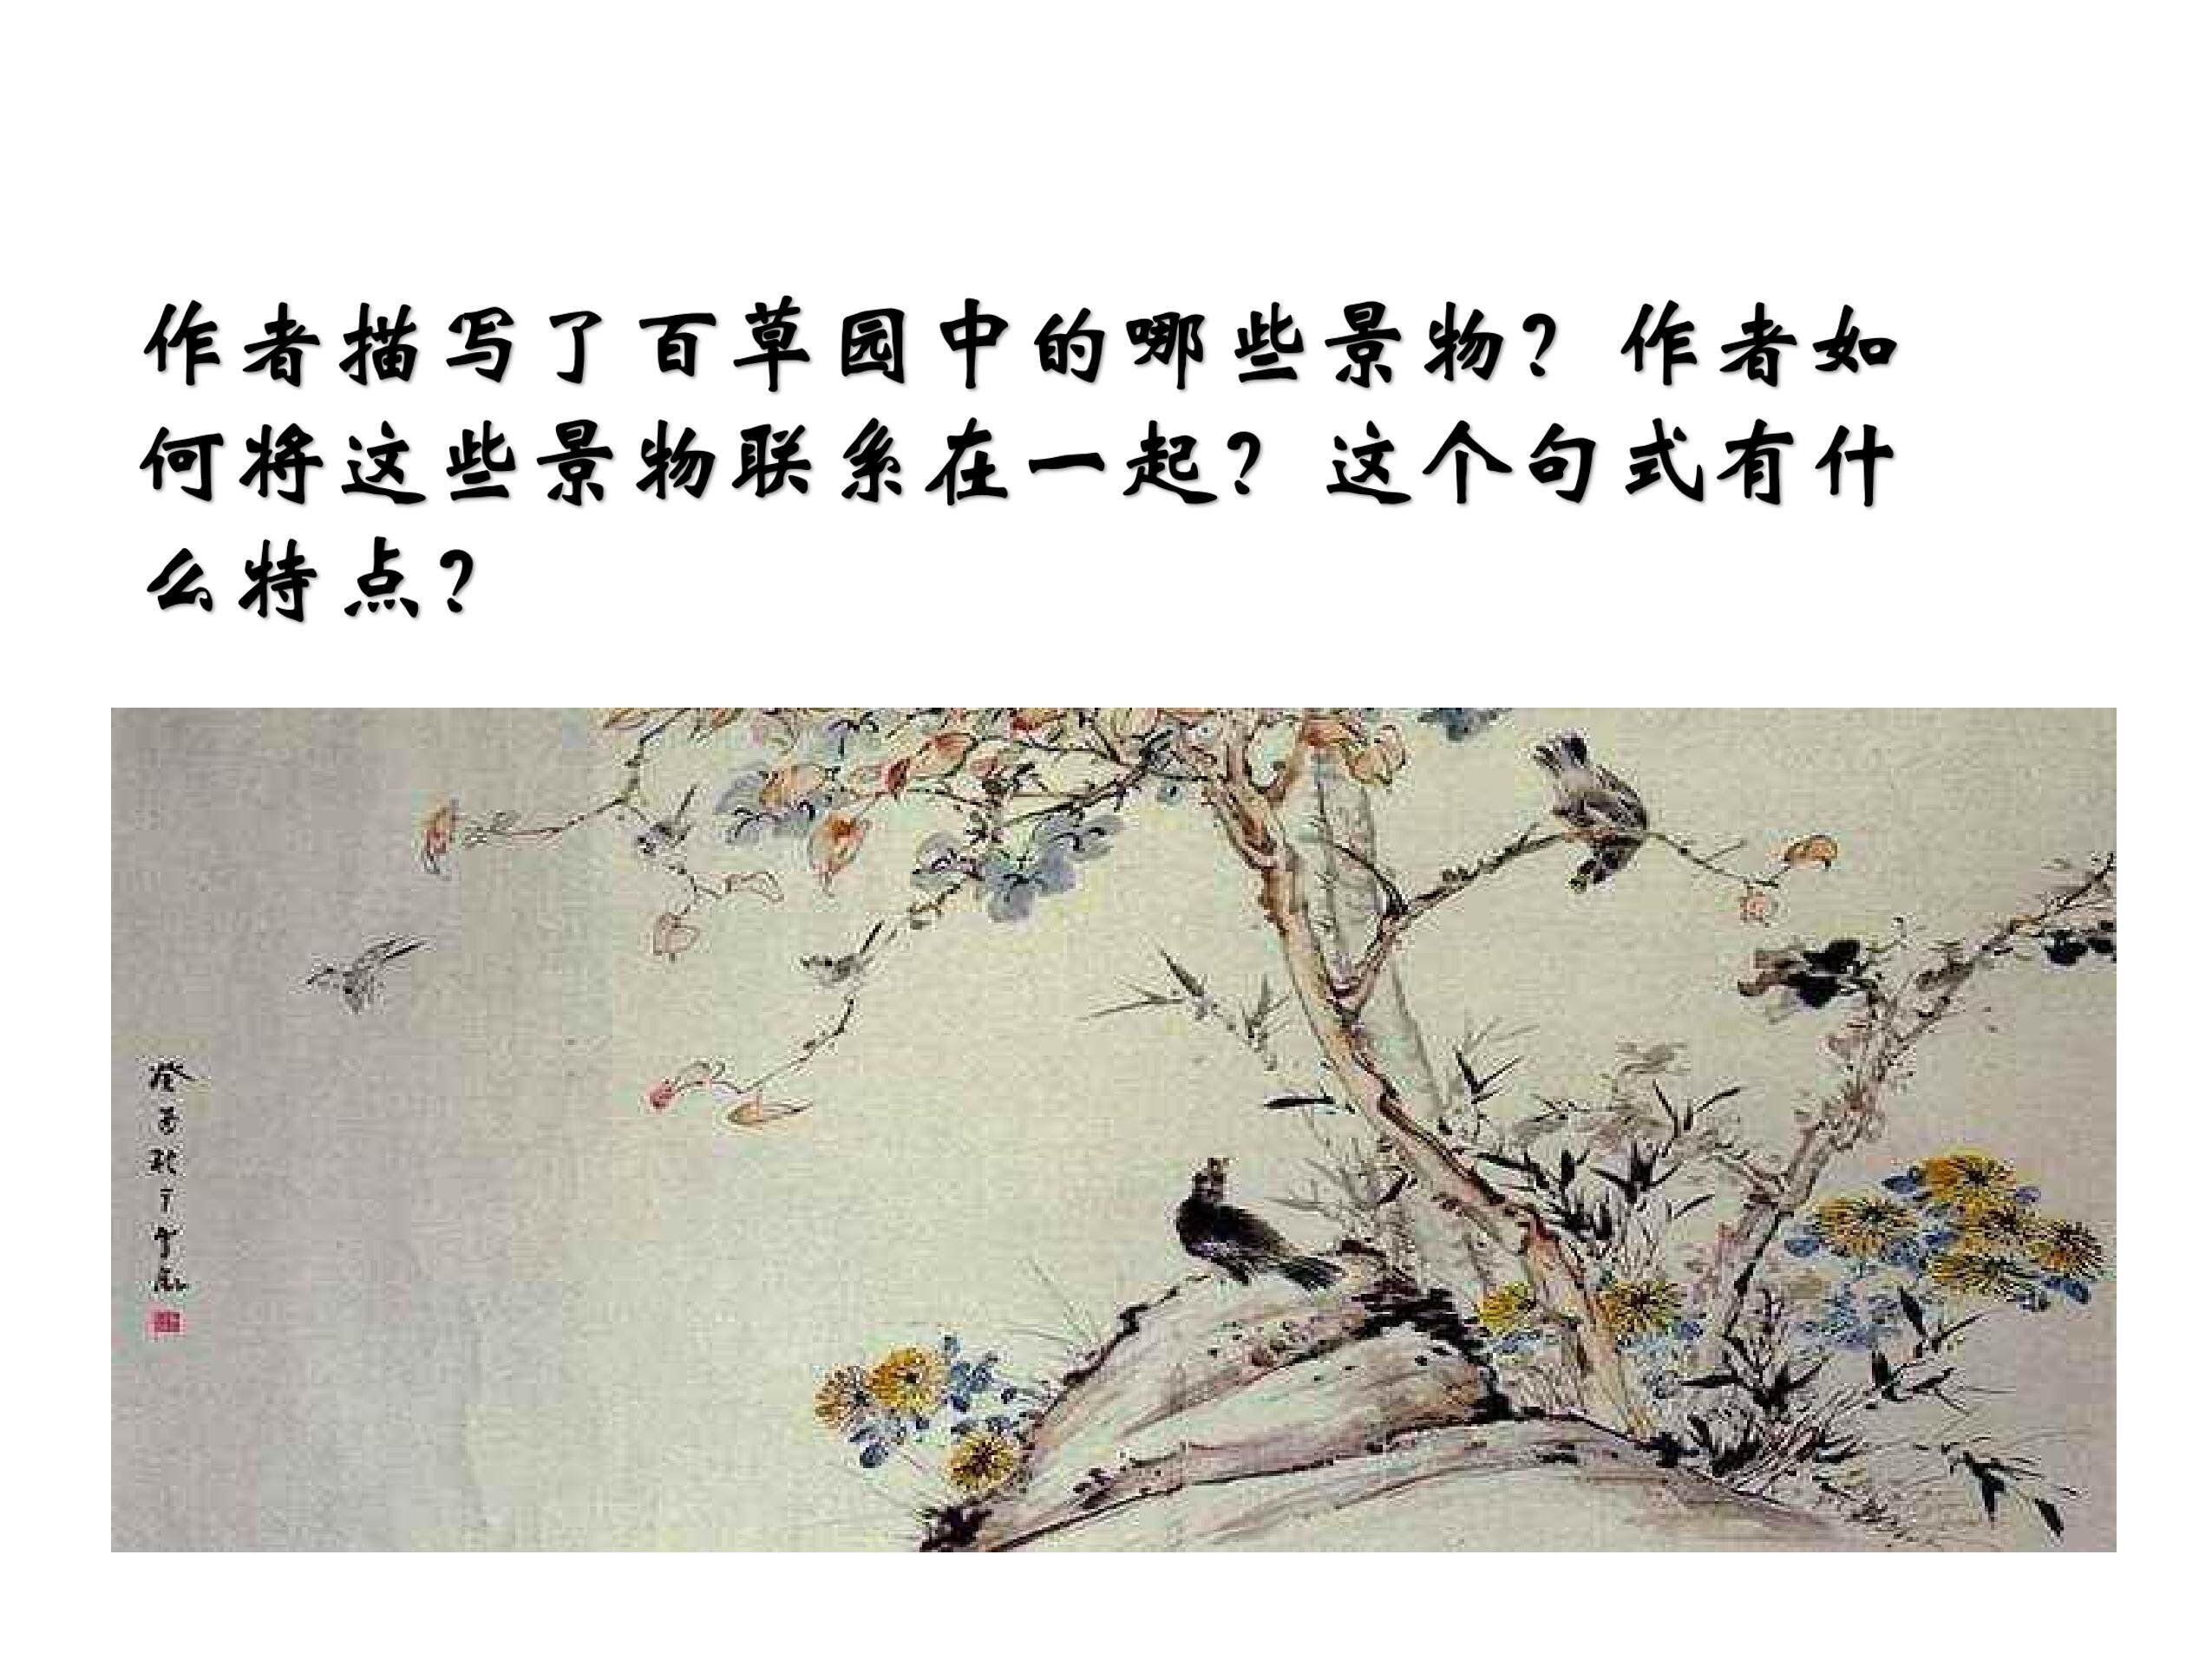 作者描写了百草园中的哪些景物？作者如
何将这些景物联系在一起？这个句式有什
么特点？